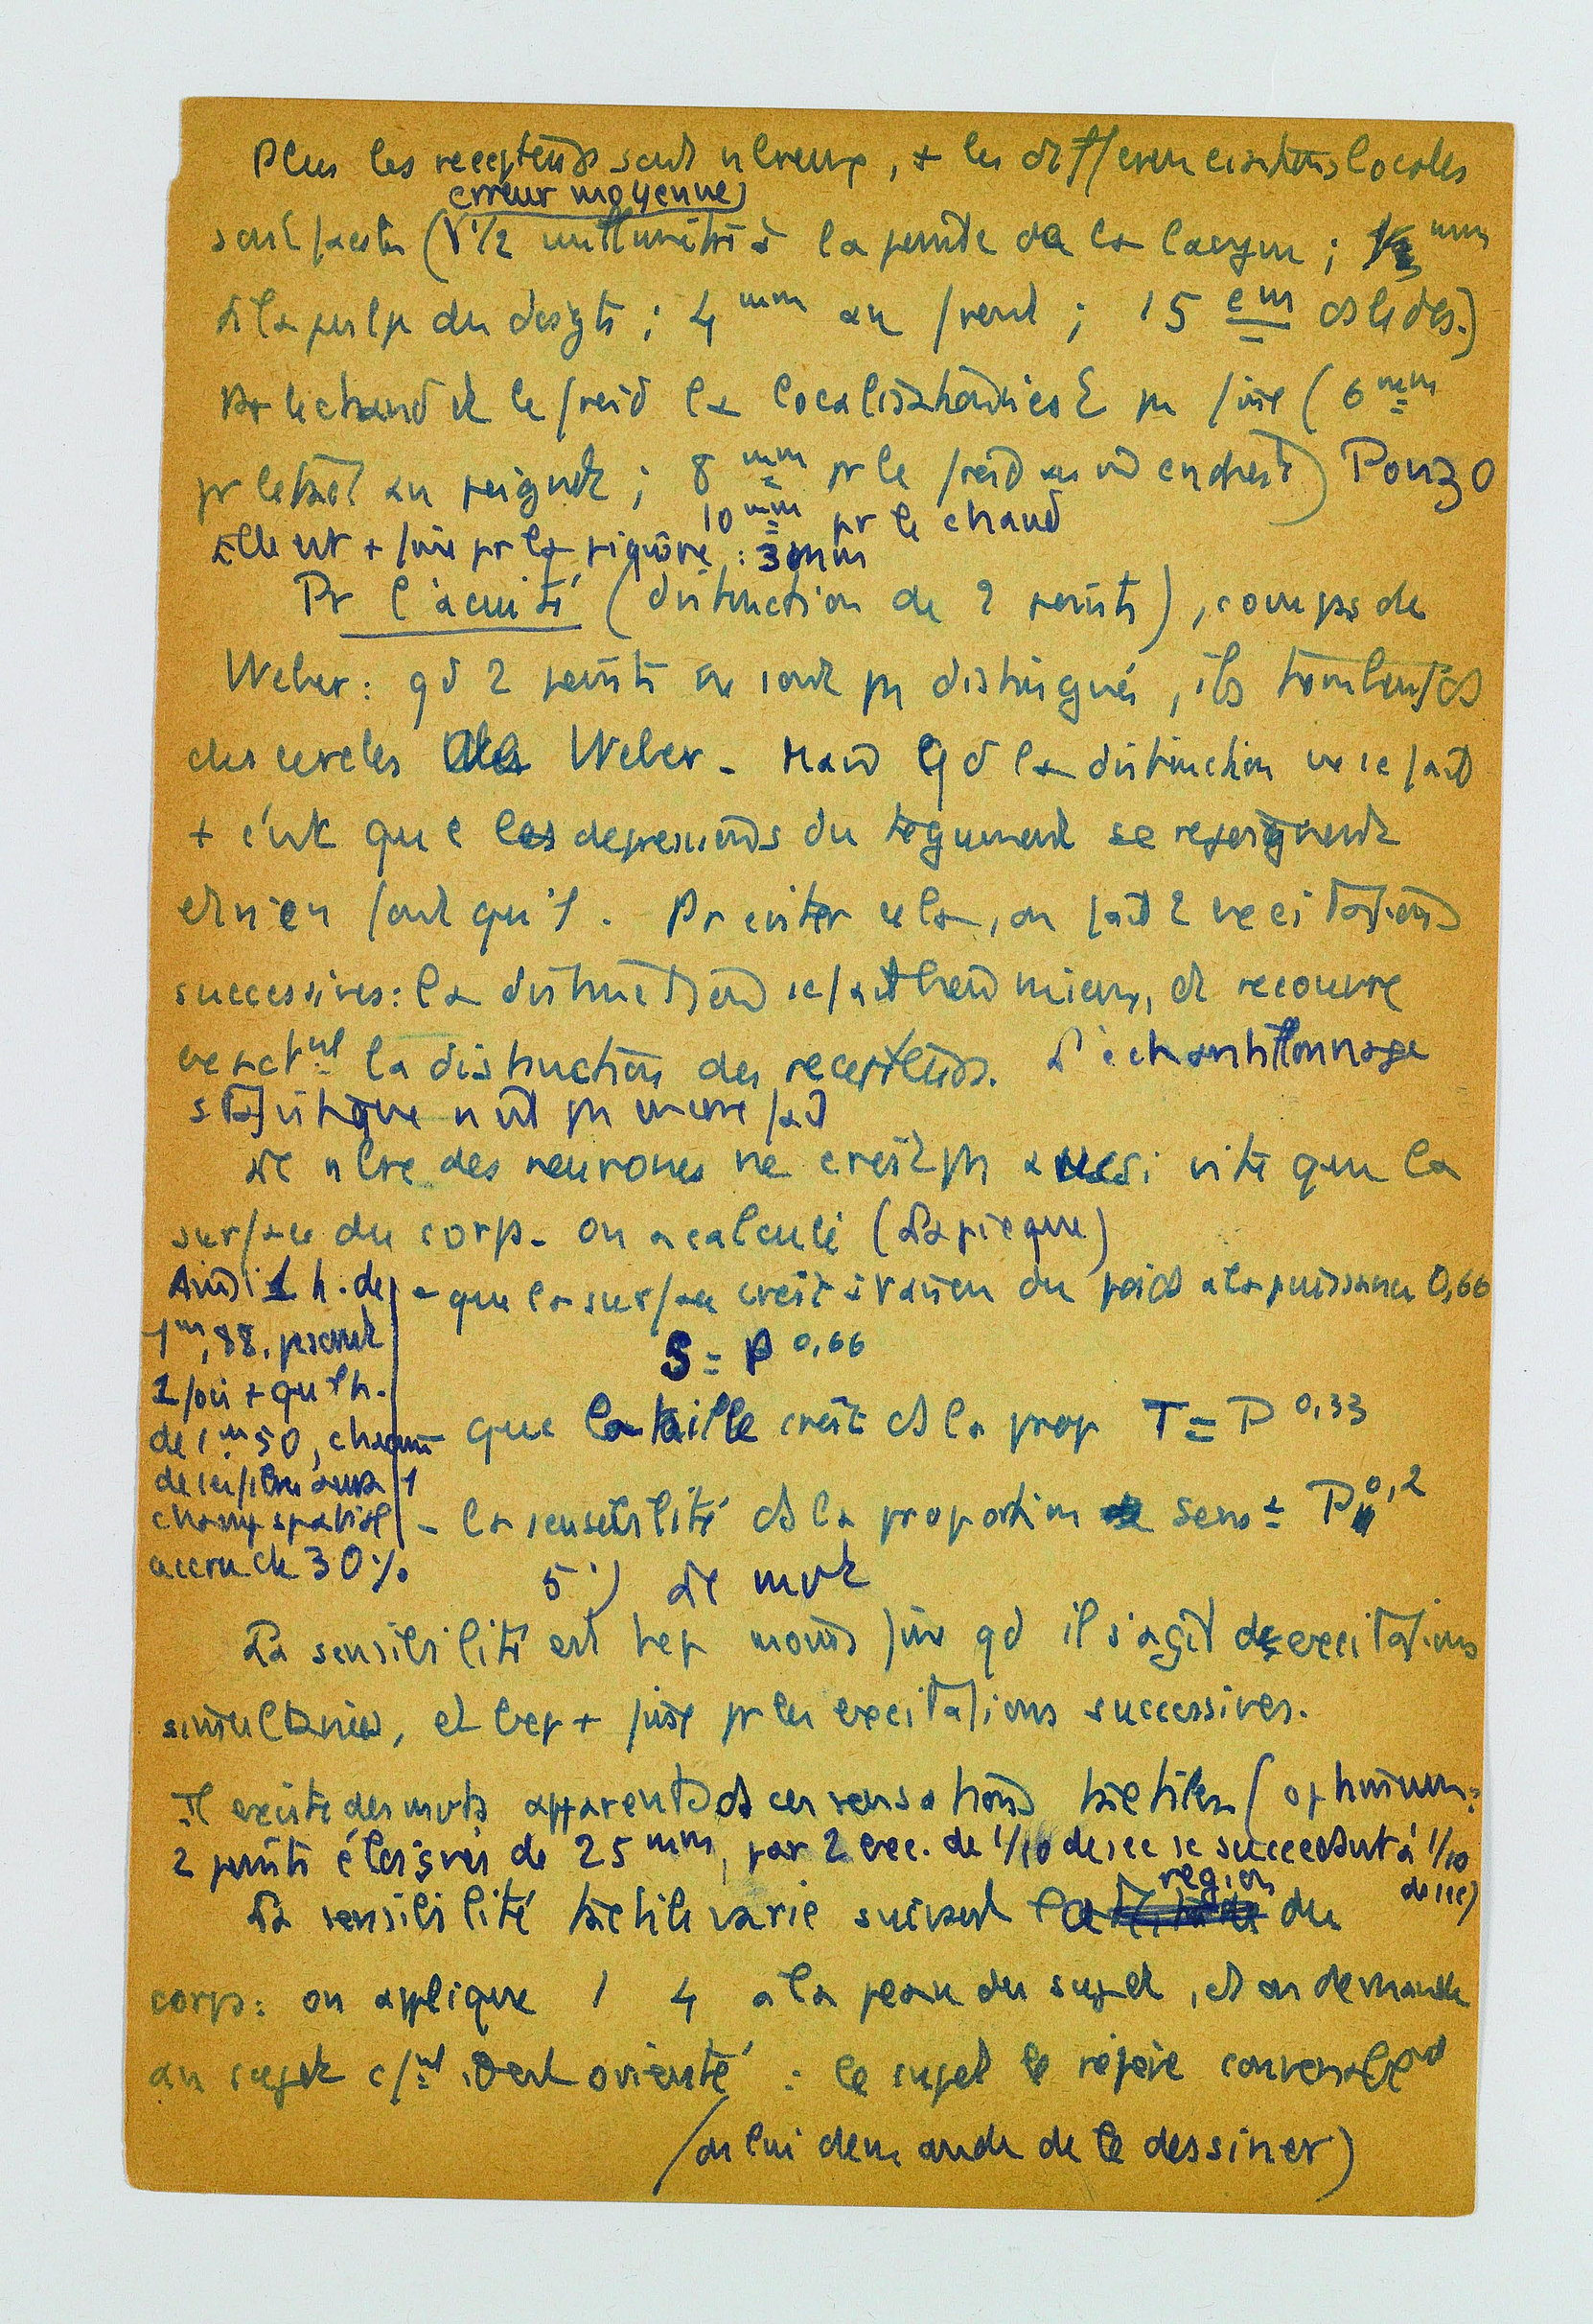 Plus les recepteurs sont nbreux, + les differenciations locales
erreur moyenne
sont fortes (1/2 millimètre à la pointe de la langue ; mm
à la pulpe du doigts ; 4 mm au front ; 15 cm ds le dos.)
Pr le chaud et le froid la localisation est fine (6 mm
pr le tact au poignet ; 8 mm pr le froid au m̂ endroit) Ponzo
10 mm pr le chaud
Elle est + fine pr la piqûre : 3 mm
Pr l'acuité (distinction de 2 points), compas de
Weber : qd 2 points ne sont pas distingués, ils tombent ds
des cercles de Weber - Mais qd la distinction ne se fait
+ c'est que les depressions du tegument se rejoignent
et n'en font qu'1. Pr eviter cela, on fait 2 excitations
successives : la distinction se fait bien mieux, et recouvre
exactnt la distinction des recepteurs. L'echantillonnage
statistique n'est pas encore fait
Le nbre des neurones ne croit pas aussi vite que la
surface du corps - On a calculé (Lapicque)
- que la surface croît à raison du poids a la puissance 0,66
S = P 0,66
- que la taille croît ds la prop T = P 0,33
- la sensibilité ds la proportion Sens = P 0,2
Ainsi 1 h. de
1m,88, pesant
2 fois + qu'1 h.
de 1m50, chacune
de ses fibres aura 1
champ spatial
accru de 30%
5°) Le mvt
La sensibilité est bcp moins fine qd il s'agit de excitations
simultanées, et bcp + fine pr les excitations successives.
Il existe des mvts apparents ds ces sensations tactiles (optimum :
2 points éloignés de 25 mm, par 2 exc. de 1/10 de sec se succedant à 1/10
de sec)
La sensibilité tactile varie suivant la région du
corps : on applique 1 4 a la peau du sujet, et on demande
au sujet est orienté : le sujet le repère
(on lui demande de le dessiner)